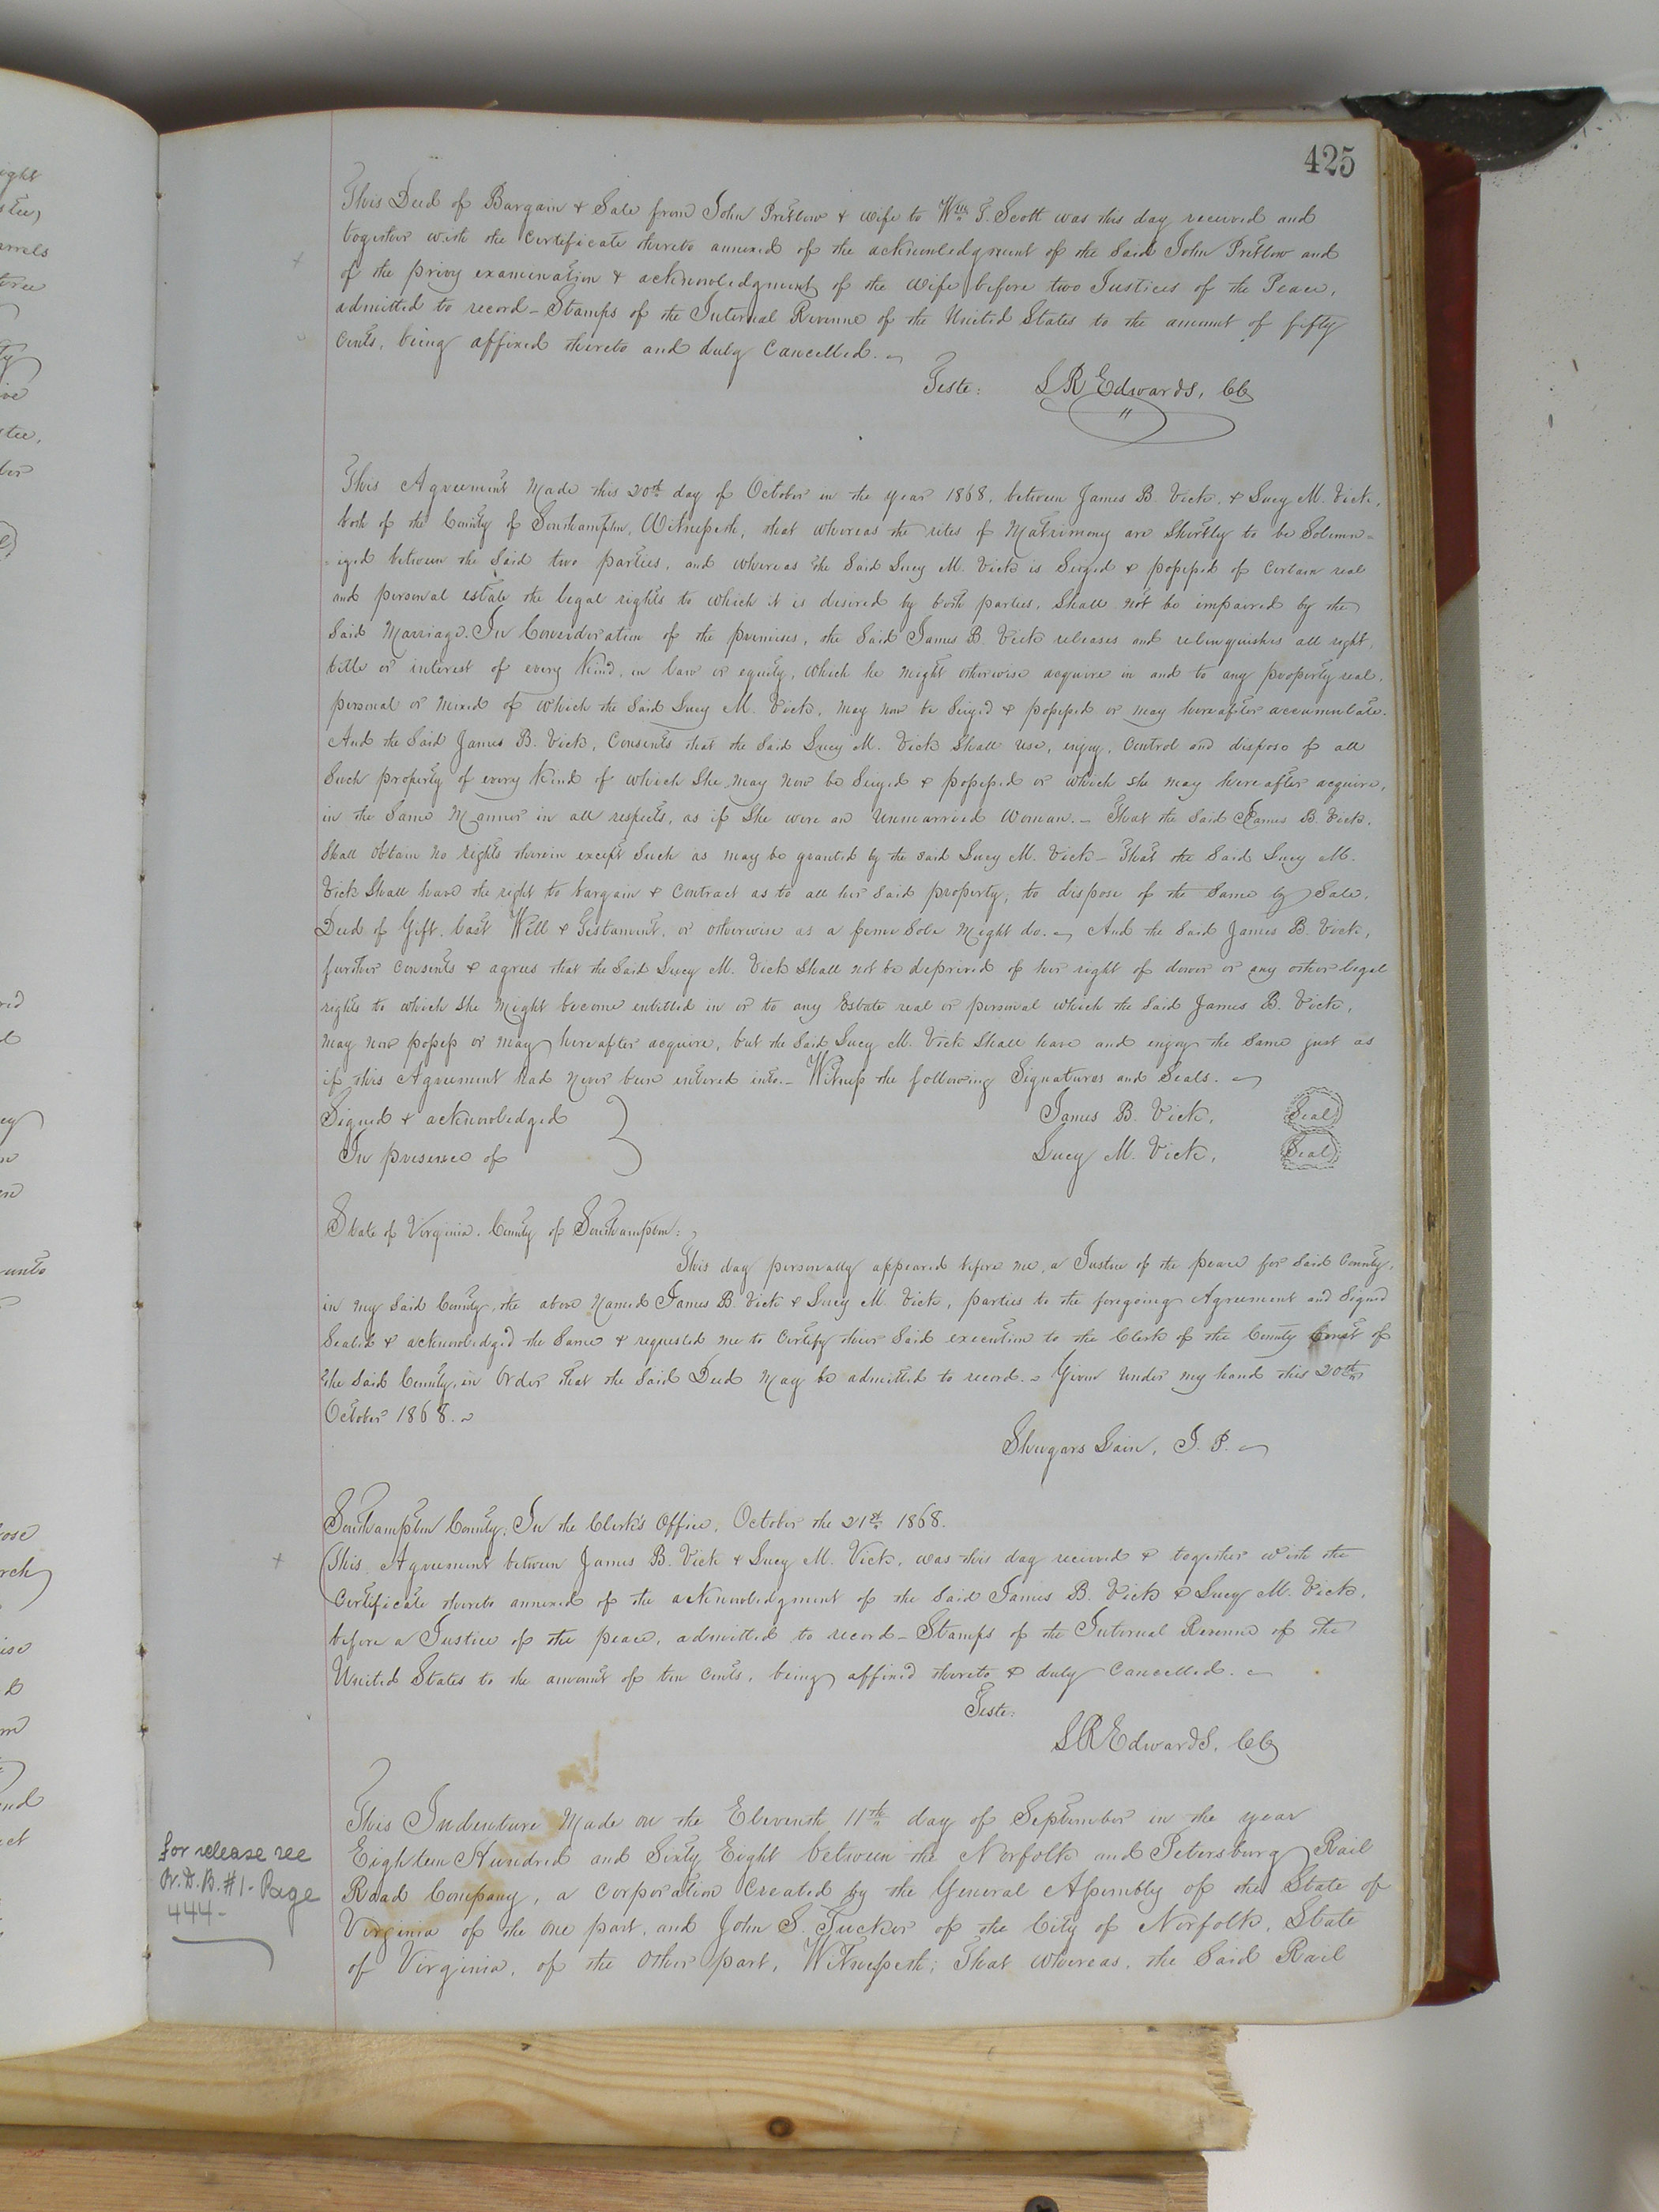 425
This Deed of Bargain & Sale from John Pretlow & wife to Wm. T. Scott was this day received and
together with the Certificate thereto annexed of the acknowledgment of the Said John Pretlow and
of the privy examination & acknowledgment of the wife before two Justices of the Peace,
admitted to record_ Stamps of the Internal Revenue of the United States to the amount of fifty
Cents, being affixed thereto and duly Cancelled.
Teste: L R Edwards, CC
This Agreement Made this 20th day of October in the year 1868, between James B. Vick, & Lucy M. Vick,
both of the County of Southampton, Witnesseth, that whereas the rites of Matrimony are Shortly to be Solemn=
=ized between the Said two parties, and whereas the Said Lucy M. Vick is Seized & possessed of Certain real
and personal estate the legal rights to which it is desired by both parties, Shall not be impaired by the
Said Marriage. In Consideration of the premises, the Said James B. Vick releases and relinquishes all right,
title or interest of every Kind, in law or equity, which he might otherwise acquire in and to any property real,
personal or mixed of which the Said Lucy M. Vick, may now be Seized & possessed or may hereafter accumulate.
And the Said James B. Vick, Consents that the Said Lucy M. Vick Shall use, enjoy, Control and dispose of all
Such property of every Kind of which She may now be Seized & possessed or which she may hereafter acquire,
in the Same Manner in all respects, as if She were an Unmarried Woman._ That the Said James B. Vick,
Shall obtain no rights therein except Such as may be granted by the said Lucy M. Vick_ That the Said Lucy M.
Vick Shall have the right to bargain & Contract as to all her Said property, to dispose of the Same by Sale,
Deed of Gift, last Will & Testament, or otherwise as a feme Sole Might do. And the Said James B. Vick,
further Consents & agrees that the Said Lucy M. Vick Shall not be deprived of her right of dower or any other legal
rights to which She Might become entitled in or to any Estate real or personal which the Said James B. Vick,
may now possess or may hereafter acquire, but the Said Lucy M. Vick Shall have and enjoy the Same just as
if this Agreement had Never been entered into._ Witness the following Signatures and Seals.
Signed & acknowledged James B. Vick, Seal
In presence of Lucy M. Vick, Seal
State of Virginia, County of Southampton:
This day personally appeared before me, a Justice of the peace for Said County,
in my Said County, the above Named James B. Vick & Lucy M. Vick, parties to the foregoing Agreement and Signed
Sealed & acknowledged the Same & requested me to Certify their Said execution to the Clerk of the County Court of
the Said County, in Order that the Said Deed May be admitted to record. Given Under my hand this 20th
October 1868.
Shugars Lain, J. P.
Southampton County, In the Clerk's Office, October the 21st 1868.
This Agreement between James B. Vick & Lucy M. Vick, was this day received & together with the
Certificate thereto annexed of the acknowledgment of the Said James B. Vick & Lucy M. Vick,
before a Justice of the peace, admitted to record_ Stamps of the Internal Revenue of the
United States to the amount of ten Cents, being affixed thereto & duly Cancelled.
Teste:
L R Edwards, CC
This Indenture Made on the Eleventh 11th day of September in the year
Eighteen Hundred and Sixty Eight between the Norfolk and Petersburg Rail
Road Company, a Corporation Created by the General Assembly of the State of
Virginia of the one part, and John S. Tucker of the City of Norfolk, State
of Virginia, of the other part, Witnesseth; That whereas, the Said Rail
for release see
D.B. #1 - Page
444-